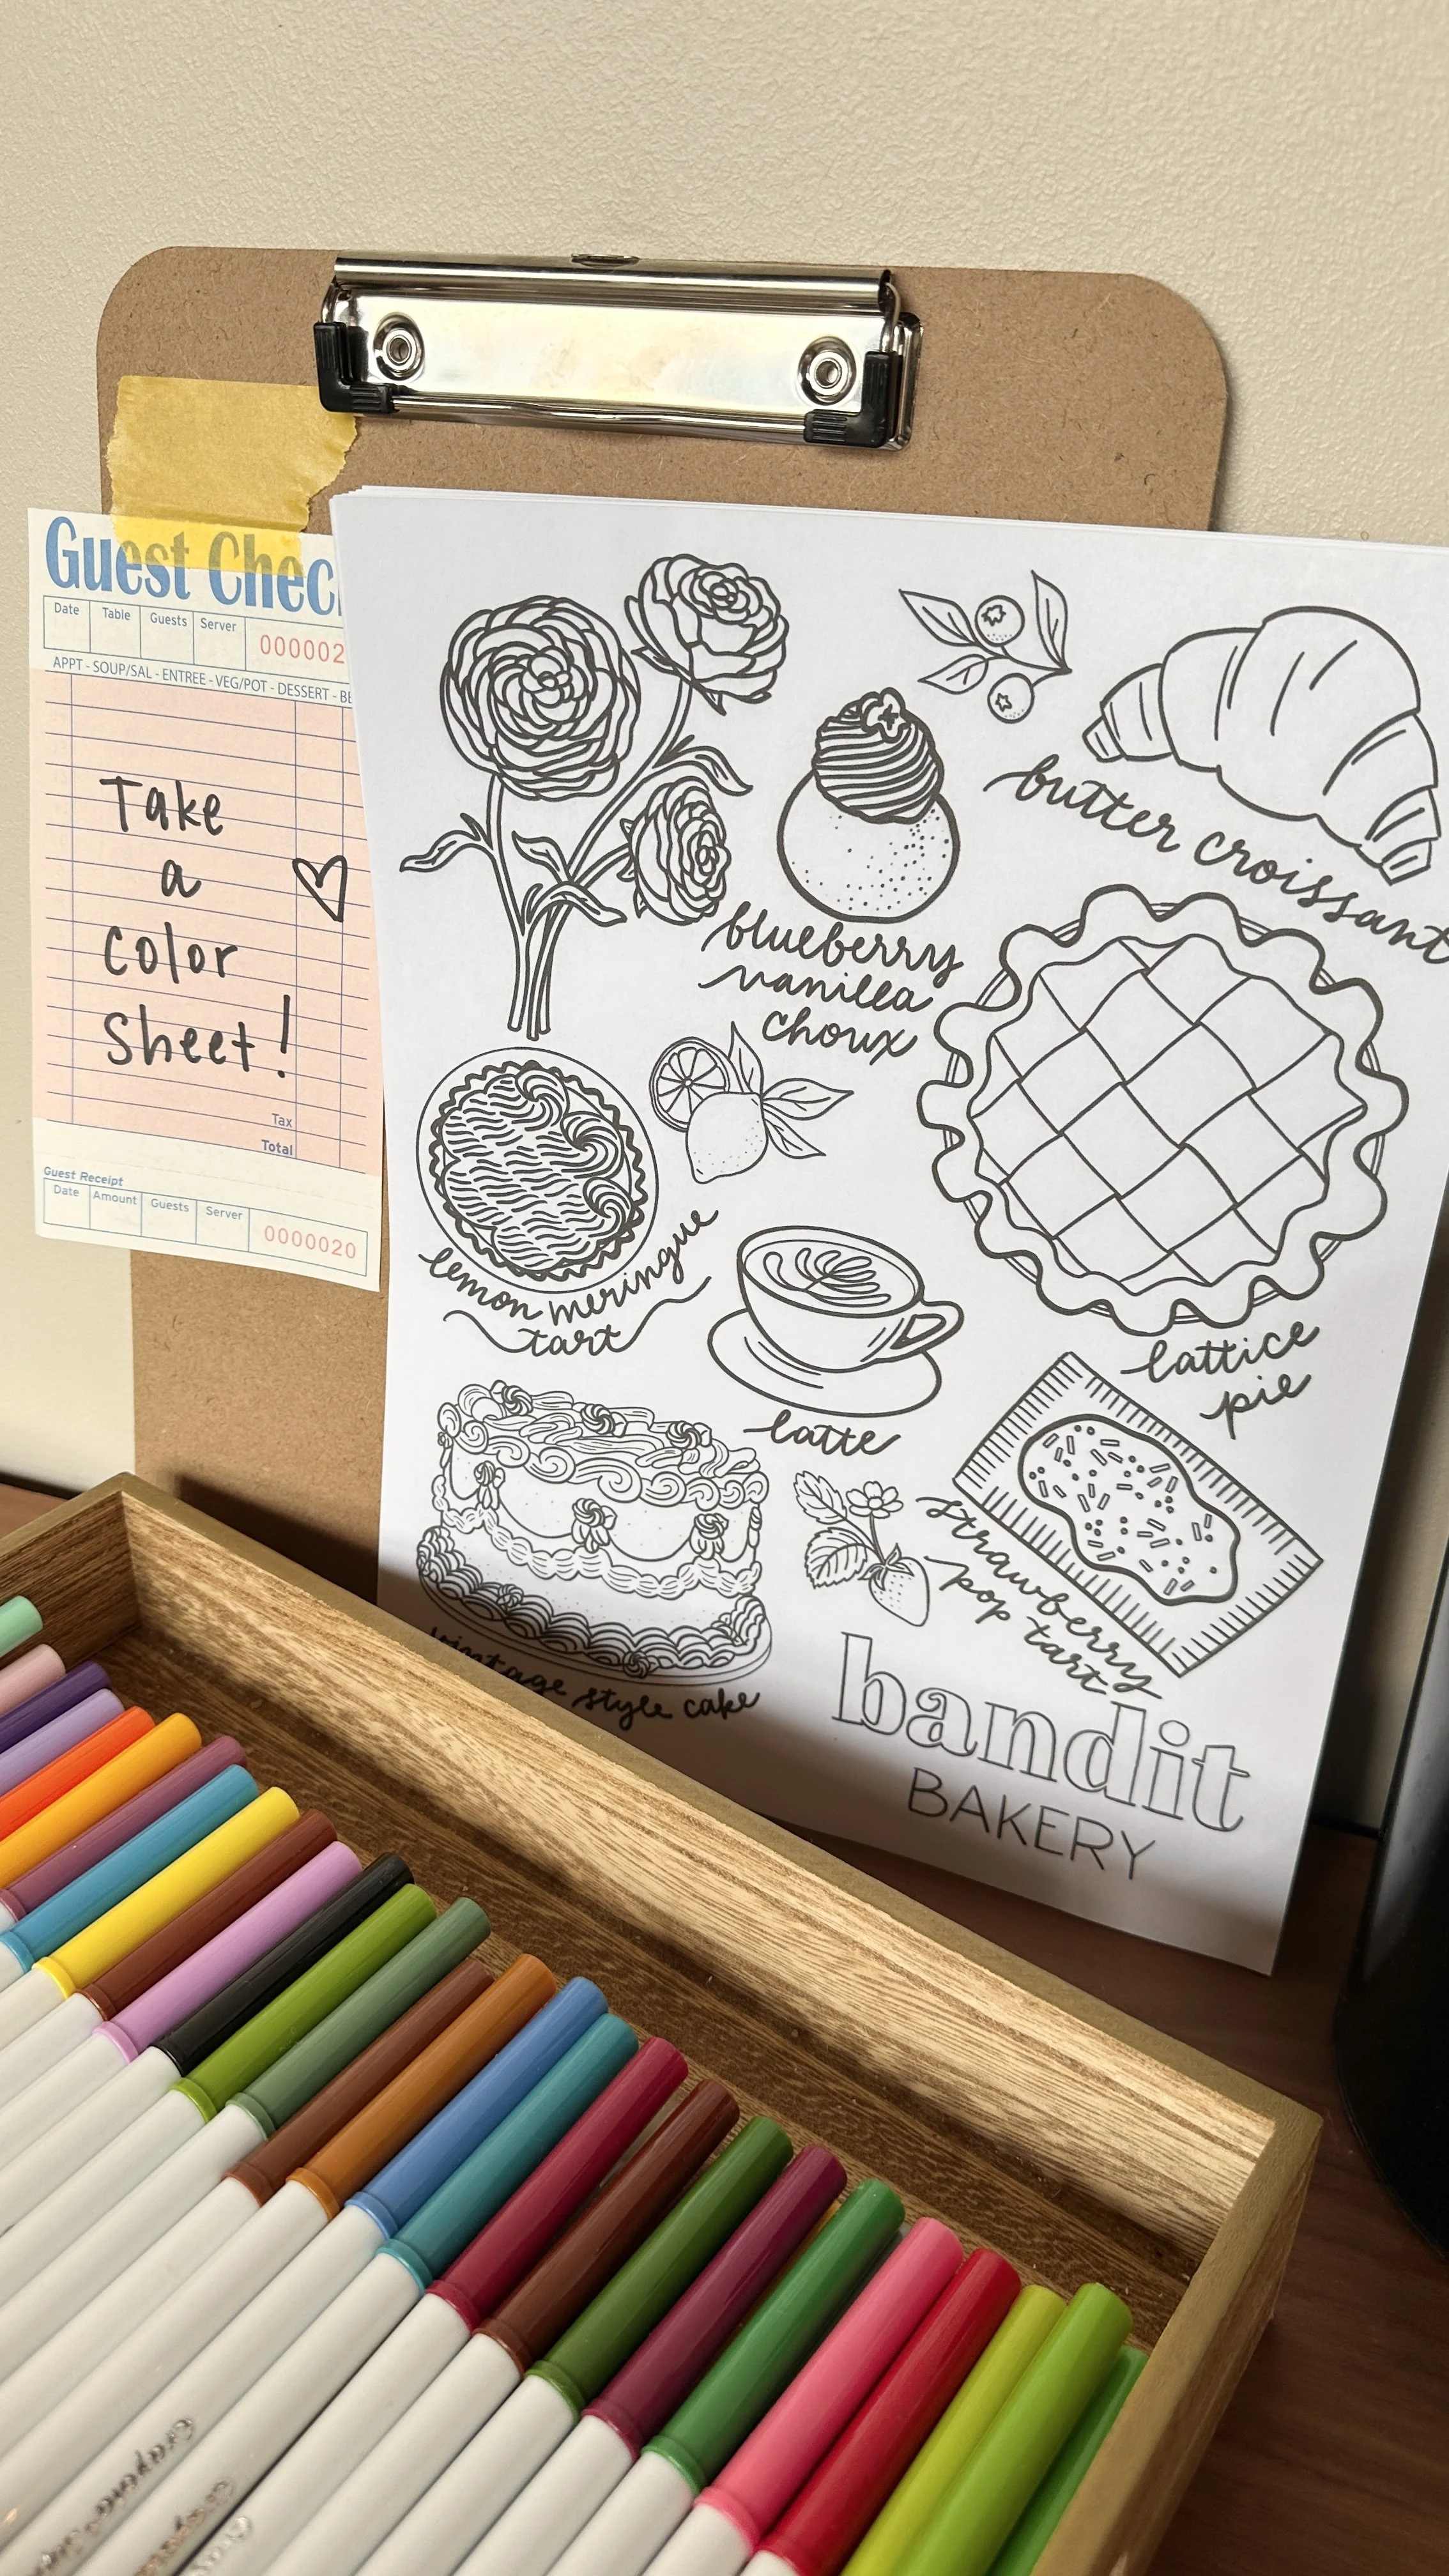 Guest Chec
Date Table Guests Server 000002
APPT - SOUP/SAL - ENTREE - VEG/POT - DESSERT - BE
Take
a
color
Sheet!
Tax
Total
Guest Receipt
Date Amount Guests Server 0000020
butter croissant
blueberry
vanilla
choux
lemon meringue
tart
lattice
pie
latte
strawberry
pop tart
vintage style cake
bandit
BAKERY
Crayola